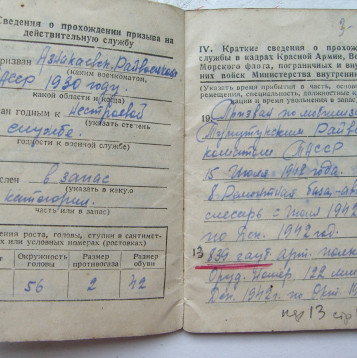 Сведения о прохождении призыва на
действительную службу
призван Азнакаевск. Райвоенком
(каким военкоматом,
АССР 1930 году.
какой области и когда)
ан годным к Нестроевой
(указать степень
службе.
годности к военной службе)
слен в запас
(указать в какую
категории.
часть или в запас)
ения роста, головы, ступни в сантимет-
ах или условных номерах (ростовках)
Окружность головы
Размер противогаза
Размер обуви
56 2 42
3
IV. Краткие сведения о прохожден
службы в кадрах Красной Армии, Во
Морского флота, пограничных и вну
них войск Министерства внутрен
(Указывается прибытие в часть, основ
ремещения, специальность, должностная к
рации и время увольнения в запас
19 Призван по мобилиза
Райв
комитетом ТАССР
15 Июля 1942 года.
8 Ремонтная база
слесарь = Июля 1942
по Дек. 1942 год.
13
839 гауб арт. полк
Оруд. Номер 122 мм
Дек. 1942г. по
13 стр